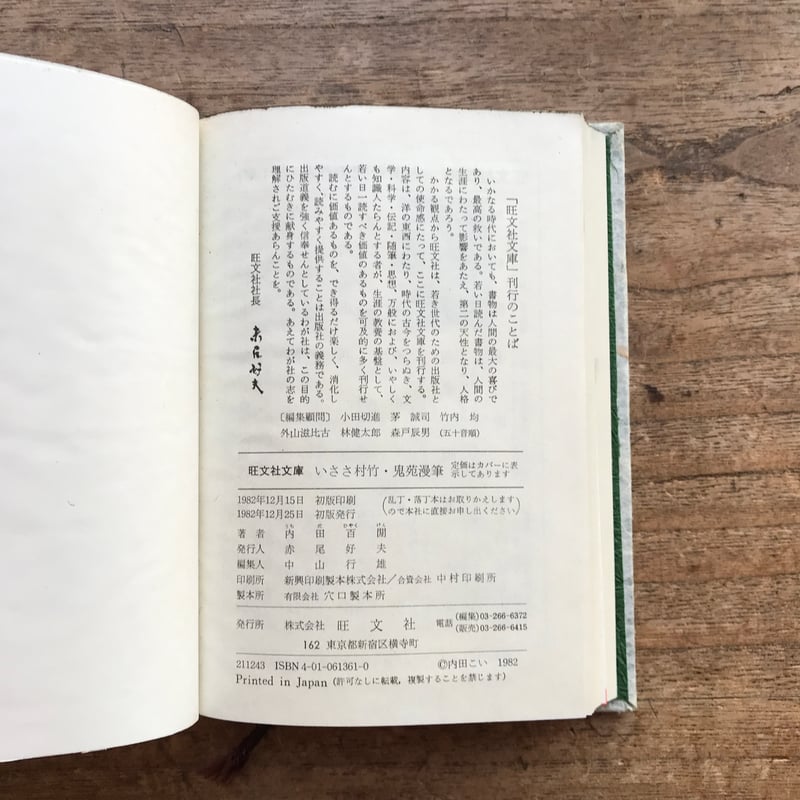 「旺文社文庫」刊行のことば
いかなる時代においても、書物は人間の最大の喜びで
あり、最高の救いである。若い日読んだ書物は、人間の
生涯にわたって影響をあたえ、第二の天性となり、人格
となるであろう。
かかる観点から旺文社は、若き世代のための出版社と
しての使命感にたって、ここに旺文社文庫を刊行する。
内容は、洋の東西にわたり、時代の古今をつらぬき、文
学・科学・伝記・随筆・思想、万般におよび、いやしく
も知識人たらんとする者が、生涯の教養の基盤として、
若い日一読すべき価値のあるものを可及的に多く刊行せ
んとするものである。
読むに価値あるものを、でき得るだけ楽しく、消化し
やすく、読みやすく提供することは出版社の義務である。
出版道義を強く信奉せんとしているわが社は、この目的
にひたむきに献身するものである。あえてわが社の志を
理解されご支援あらんことを。
旺文社社長 赤尾好夫
［編集顧問］ 小田切進 茅 誠司 竹内 均
外山滋比古 林健太郎 森戸辰男 (五十音順)
旺文社文庫 いささ村竹・鬼苑漫筆 定価はカバーに表
示してあります
1982年12月15日 初版印刷
1982年12月25日 初版発行
(乱丁・落丁本はお取りかえします
ので本社に直接お申し出ください)
うち だ ひやく けん
著 者 内 田 百 閒
発行人 赤 尾 好 夫
編集人 中 山 行 雄
印刷所 新興印刷製本株式会社/合資会社 中村印刷所
製本所 有限会社 穴口製本所
発行所 株式会社 旺 文 社 電話 (編集)03-266-6372
(販売)03-266-6415
162 東京都新宿区横寺町
211243 ISBN4-01-061361-0 ©内田こい 1982
Printed in Japan (許可なしに転載，複製することを禁じます)